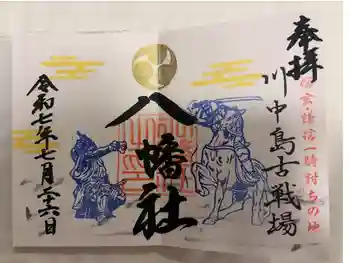 奉拝
信玄・謙信一騎討ちの地
川中島古戦場
八幡社
令和七年七月二十六日